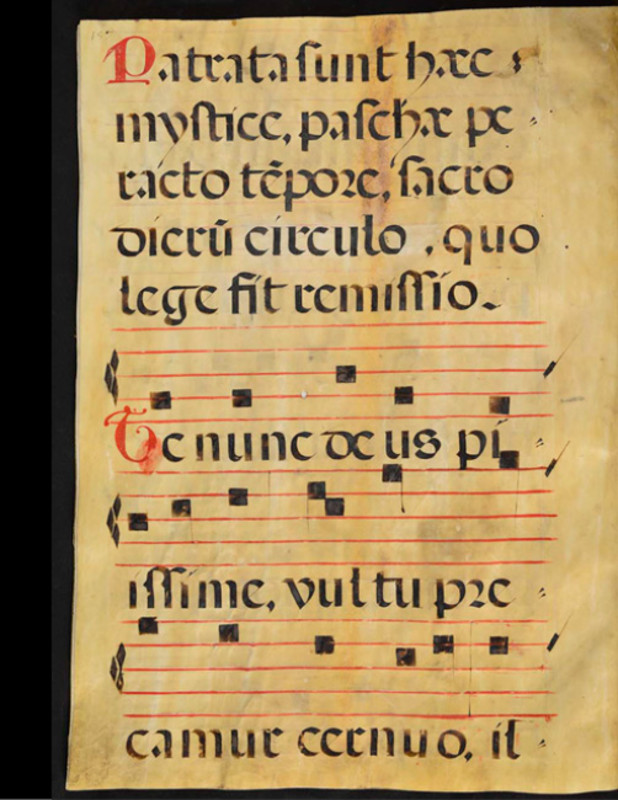 Patrata sunt hæc
mystice, paschæ pe
racto tẽpore, sacro
dierũ circulo, quo
lege fit remissio.
Te nunc deus pi
issime, vultu pre
camur cernuo, il